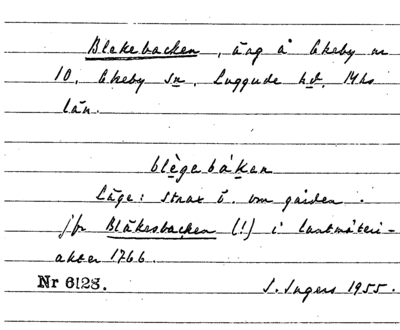 Blekebacken, äng å Ekeby nr
10, Ekeby sn, Luggude hd, Mhs
län.
blègebákan
Läge: strax ö. om gården.
jfr Bläkesbacken (!) i lantmäteri-
akter 1766.
Nr 6128. I. Ingers 1955.